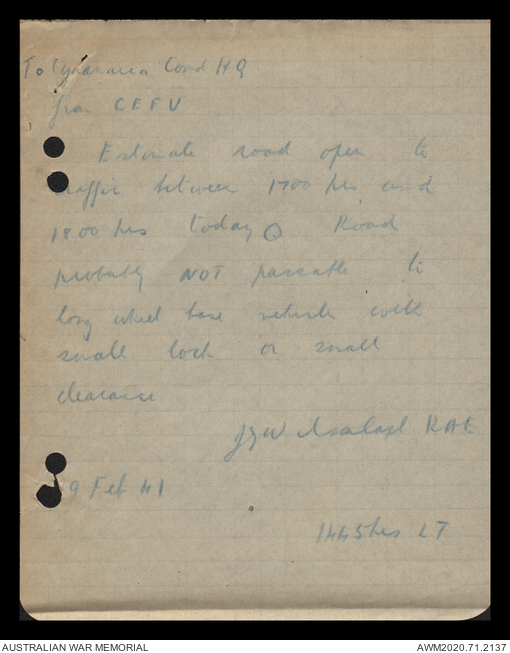 To Cyrenaica Comd HQ
from CEFU
Estimate road open to
traffic between 1700 hrs and
1800 hrs today O Road
probably NOT passable to
long wheel base vehicles with
small lock or small
clearance
RAE
9 Feb 41
1445hrs LT
AUSTRALIAN WAR MEMORIAL
AWM2020.71.2137